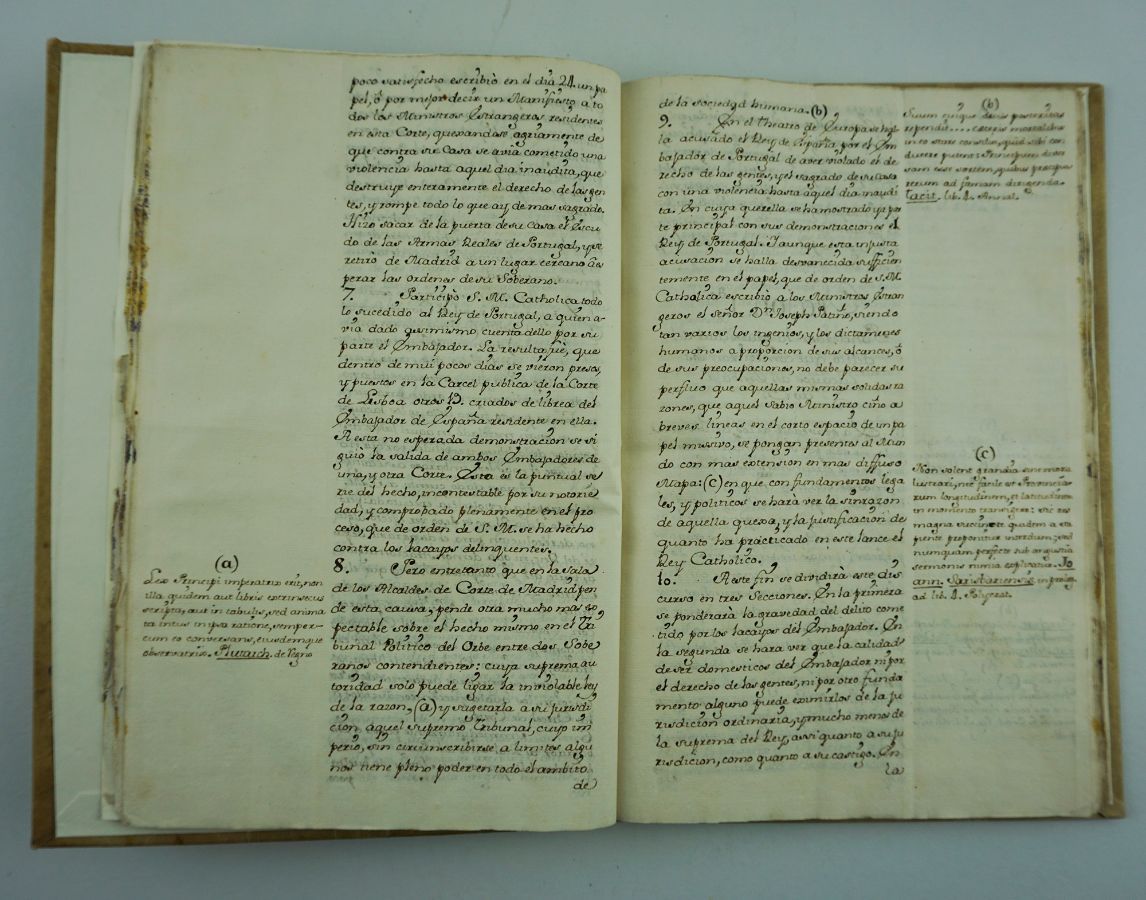 poco satisfecho escribiò en el dia 24. un pa
pel, ó por mejor decir un Manifiesto a to
dos los Ministros Estrangeros residentes
en esta Corte, quexandose agriamente de
que contra su Casa se avia cometido una
violencia hasta aquel dia inaudita, que
destruye enteramente el derecho de las gen
tes, y rompe todo lo que ay de mas sagrado.
Hizo sacar de la puerta de su Casa el Escu
do de las Armas Reales de Portugal, y se
retirò de Madrid a un lugar cercano à es
perar las ordenes de su Soberano.
7. Participò S. M. Catholica todo
lo sucedido al Rey de Portugal, a quien a-
via dado asimismo cuenta dello por su
parte el Embajador. La resulta fuè, que
dentro de mui pocos dias se vieron presos,
y puestos en la Carcel publica de la Corte
de Lisboa otros 13. criados de librea del
Embajador de España residente en ella.
A esta no esperada demonstracion se si
guio la salida de ambos Embajadores de
una, y otra Corte. Esta es la puntual se
rie del hecho, incontestable por su notorie
dad, y comprobado plenamente en el pro
ceso, que de orden de S. M. se ha hecho
contra los lacayos delinquentes.
8. Pero entretanto que en la Sala
de los Alcaldes de Corte de Madrid pen
de esta causa; pende otra mucho mas ex
pectable sobre el hecho mismo en el Tri
bunal Politico del Orbe entre dos Sobe
ranos contendientes: cuya suprema au
toridad solo puede ligar la inviolable ley
de la razon, (a) y sugetarla a su jurisdi
cion aquel supremo Tribunal, cuyo im
perio, sin circunscribirse a limites algu
nos tiene pleno poder en todo el ambito
de
(a)
Lex Principi imperatrix erit, non
illa quidem aut libris extrinsecus
scripta, aut in tabulis, sed anima
ta intus in ipsa ratione, semper-
cum eo conversans, eiusdemque
observatrix. Plutarch. de Regno
de la sociedad humana. (b)
9. En el theatro de Europa se hal
la acusado el Rey de España, por el Em
bajador de Portugal de aver violado el de
recho de las gentes, y el sagrado de su Casa
con una violencia hasta aquel dia inaudi
ta. En cuya querella se ha mostrado ya par
te principal con sus demonstraciones el
Rey de Portugal. Y aunque esta injusta
acusacion se halla desvanecida sufficien
temente en el papel, que de orden de S. M.
Catholica escribiò a los Ministros Estran
geros el Señor Dn. Joseph Patiño, siendo
tan varios los ingenios, y los dictamenes
humanos a proporcion de sus alcances, ó
de sus preocupaciones, no debe parecer su
perfluo que aquellas mismas solidas ra
zones, que aquel sabio Ministro ciñò a
breves lineas en el corto espacio de un pa
pel missivo, se pongan presentes al Mun
do con mas extension en mas diffuso
Mapa: (c) en que con fundamentos lega
les, y politicos se harà ver la sinrazon
de aquella quexa, y la justificacion de
quanto ha practicado en este lance el
Rey Catholico.
10. A este fin se dividirà este dis
curso en tres Secciones. En la primera
se ponderarà la gravedad del delito come
tido por los lacayos del Embajador. En
la segunda se hara ver que la calidad
de ser domesticos del Embajador ni por
el derecho de las gentes, ni por otro funda
mento alguno puede eximirlos de la ju
risdicion ordinaria, y mucho menos de
la suprema del Rey, assi quanto a su ju
risdicion, como quanto a su castigo. En
la
(b)
Suum cuique decus posteritas
rependit.... ceteris mortalibus
in eo stare consilia, quid sibi con
ducere putent: Principum diver
sam esse sortem, quibus præcipua
rerum ad famam dirigenda.
Tacit. lib. 4. Annal.
(c)
Non solent grandia sine mora
lustrari, nec facile est Provincia
rum longitudinem, et latitudinem
in momento transigere: sic res
magna succincte quidem a sa
piente proponitur interdum; sed
numquam perfecte sub angustia
sermonis nimia explicatur. Jo
ann. Sarisbariensis in prolog.
ad lib. 4. Polycrat.